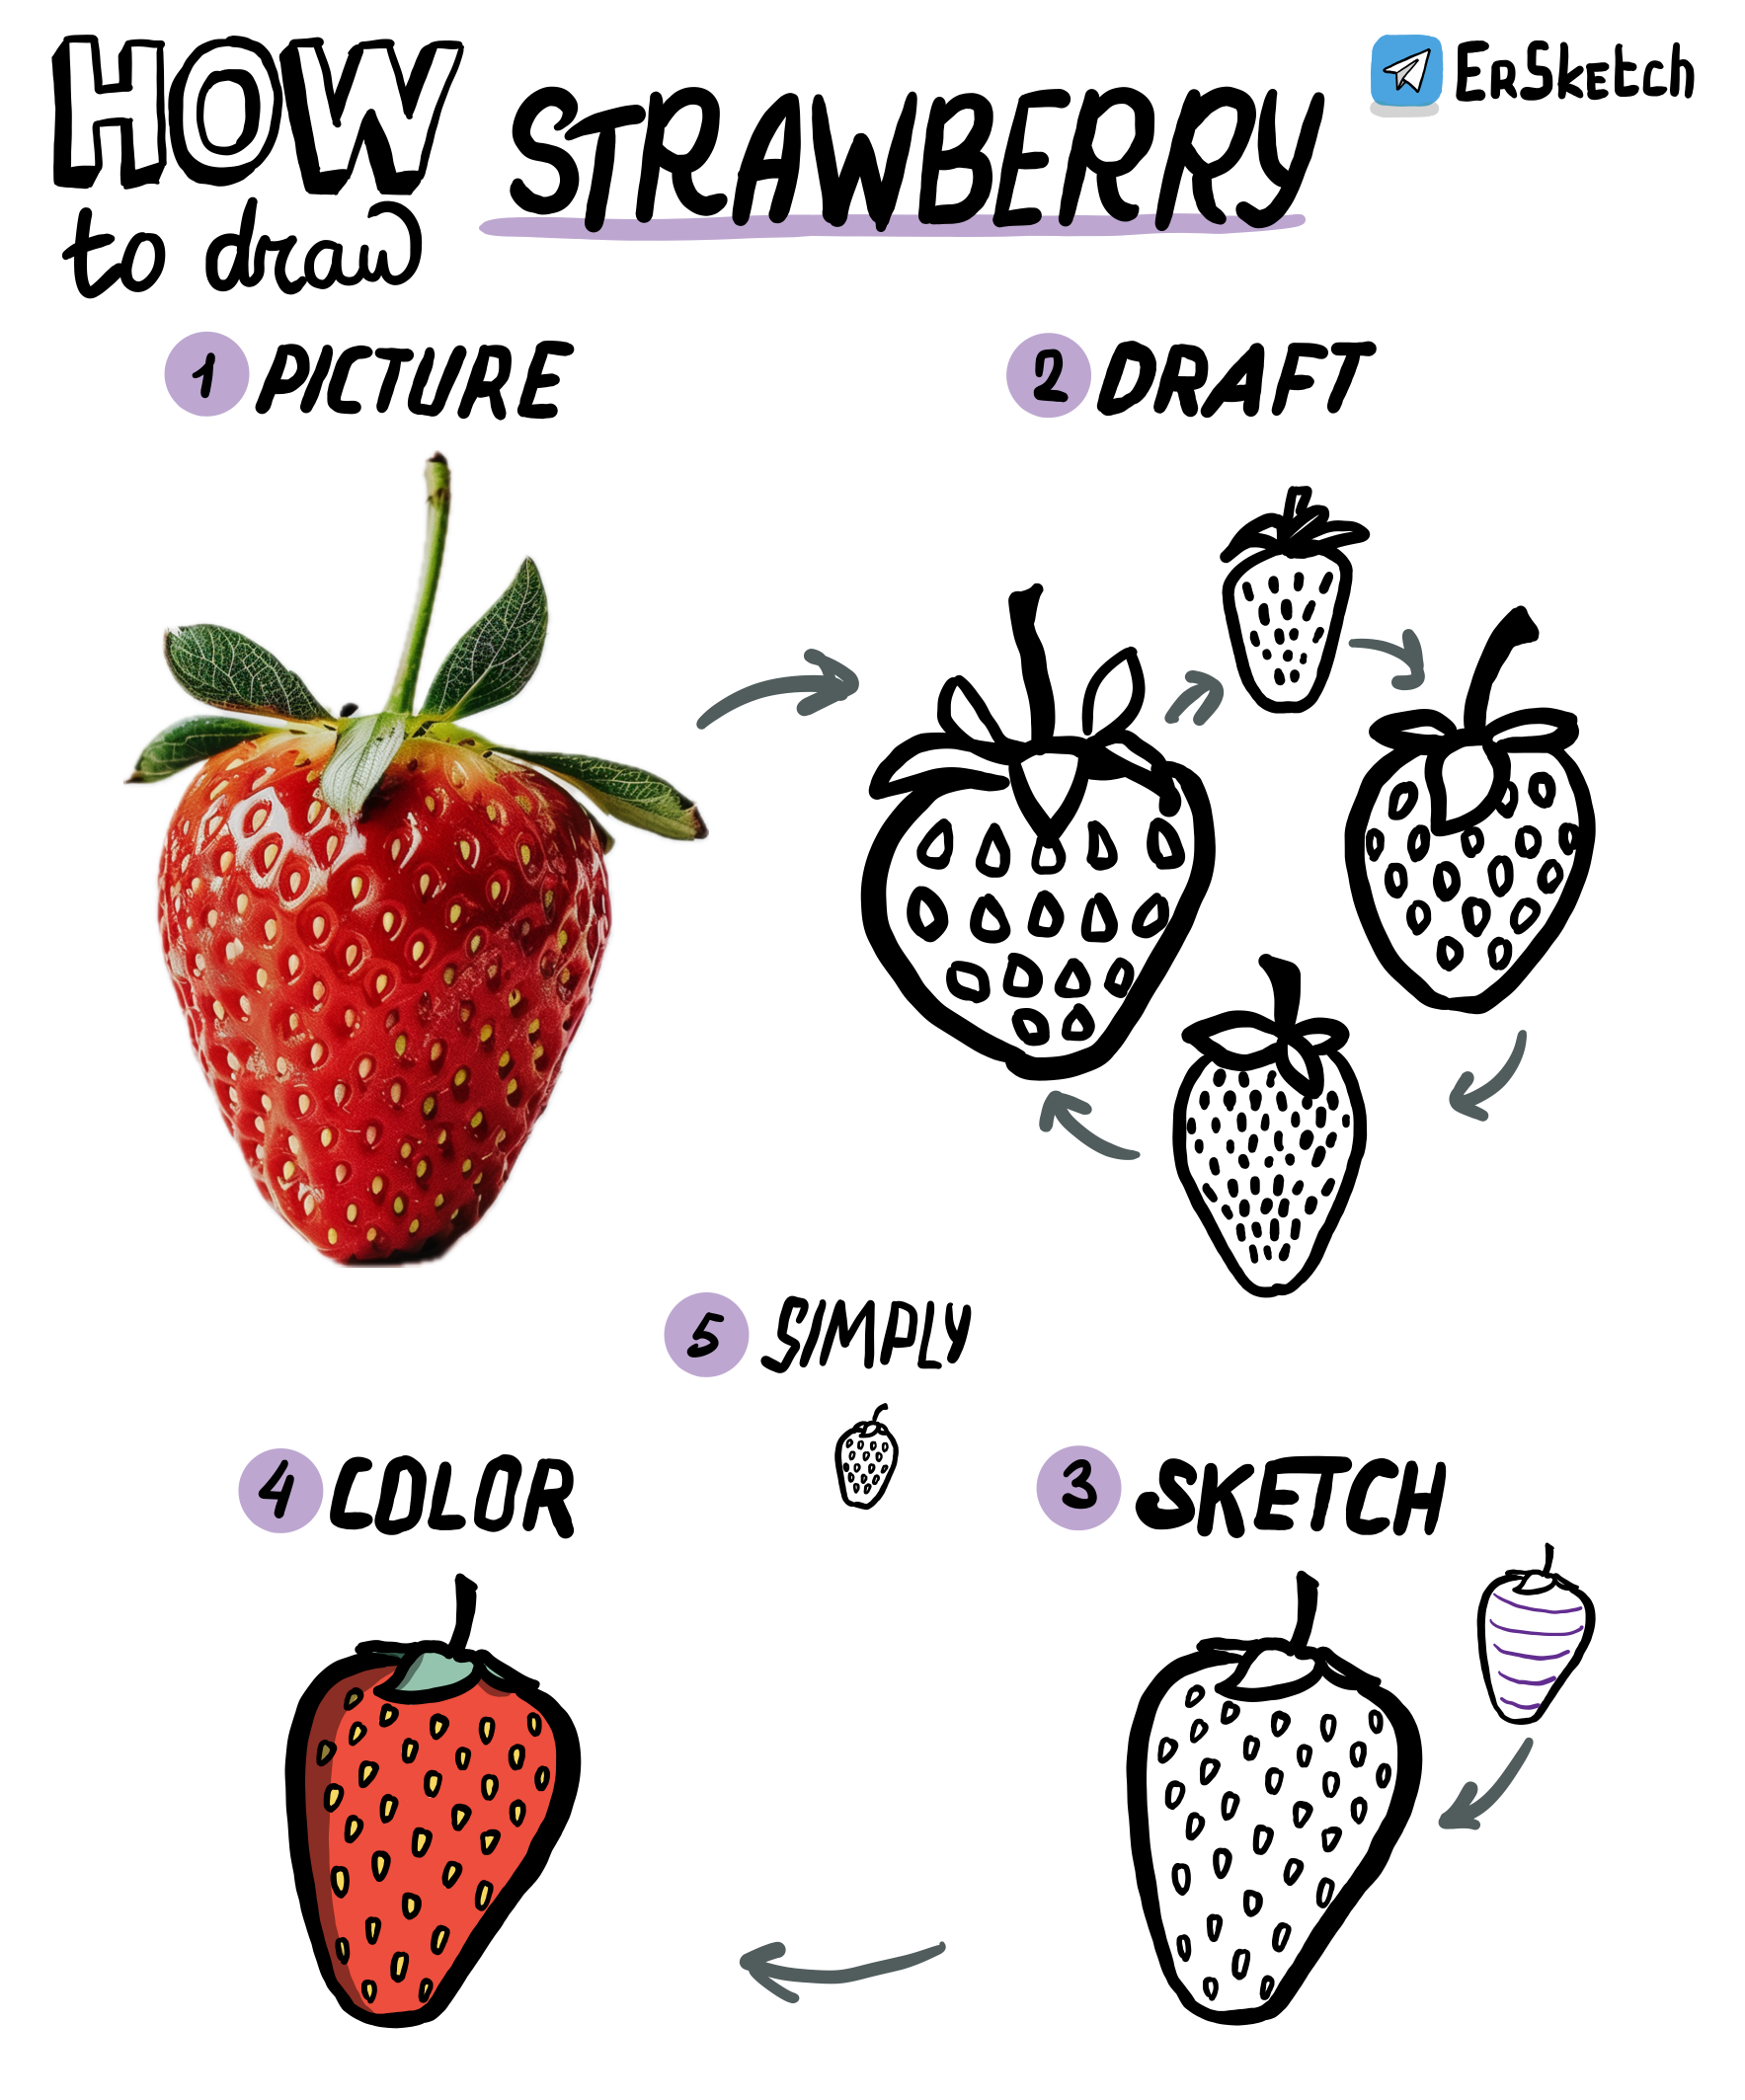 HOW
to draw
STRAWBERRY
ErSketch
1 PICTURE
2 DRAFT
5 SIMPLY
4 COLOR
3 SKETCH